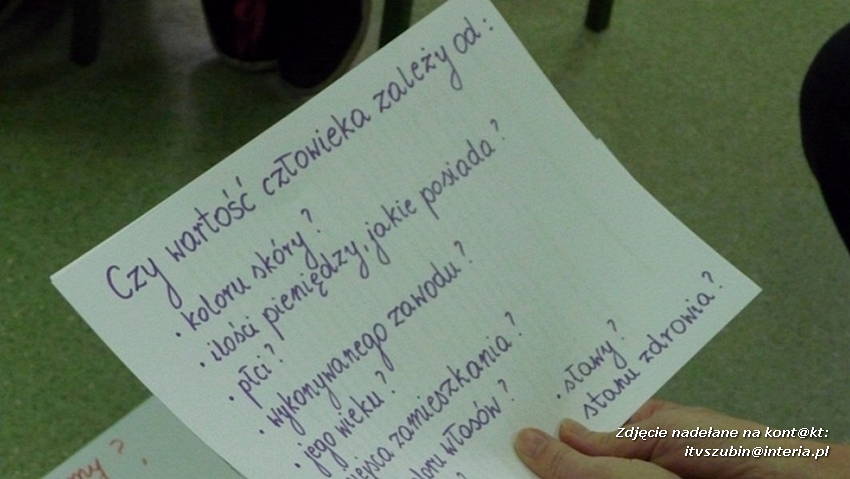 Czy wartość człowieka zależy od:
· koloru skóry?
· ilości pieniędzy, jakie posiada?
· płci?
· wykonywanego zawodu?
· jego wieku?
zamieszkania?
włosów?
· sławy?
stanu zdrowia?
Zdjęcie nadełane na kont@kt:
itvszubin@interia.pl